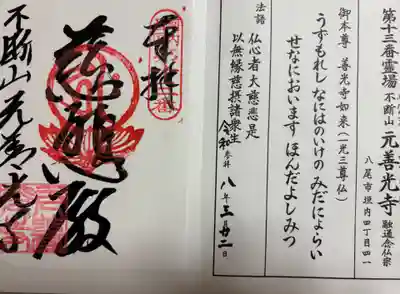 第十三番霊場 不断山 元善光寺 融通念仏宗
八尾市垣内四丁目四一
御本尊 善光寺如来(一光三尊仏)
うずもれし なにはのいけの みだにょらい
せなにおいます ほんだよしみつ
法語
仏心者大慈悲是
以無縁慈摂諸衆生
令和 参拝 八年三月廿二日
奉拝
不断山元善光寺